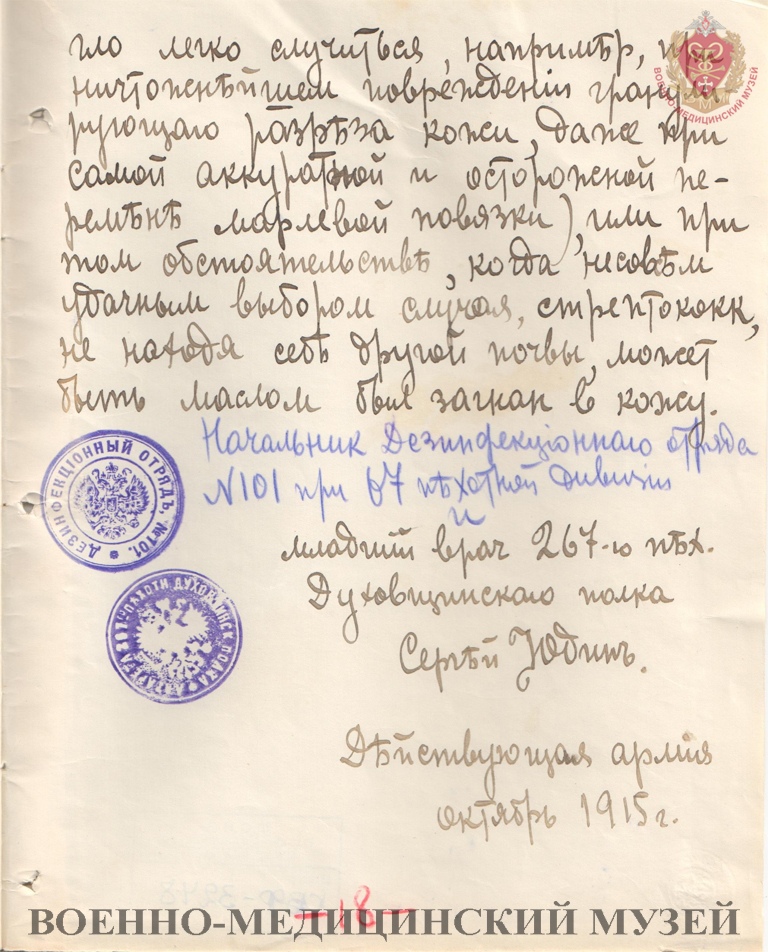 гло легко случиться, напримѣр, при
ничтожнѣйшем поврежденіи гранули
рующаго разрѣза кожи, даже при
самой аккуратной и осторожной пе-
ремѣнѣ марлевой повязки), или при
том обстоятельствѣ, когда несовсѣм
удачным выбором случая, стрептококк,
не находя себѣ другой почвы, может
быть маслом был загнан в кожу.
Начальник Дезинфекціоннаго отряда
N101 при 67 пѣхотной дивизіи
и
младшій врач 267-го пѣх.
Духовщинскаго полка
Сергѣй Юдинъ.
Дѣйствующая армія
октябрь 1915 г.
-18-
ДЕЗИНФЕКЦІОННЫЙ ОТРЯДЪ №101.
ВОЕННО-МЕДИЦИНСКИЙ МУЗЕЙ
ВОЕННО-МЕДИЦИНСКИЙ МУЗЕЙ